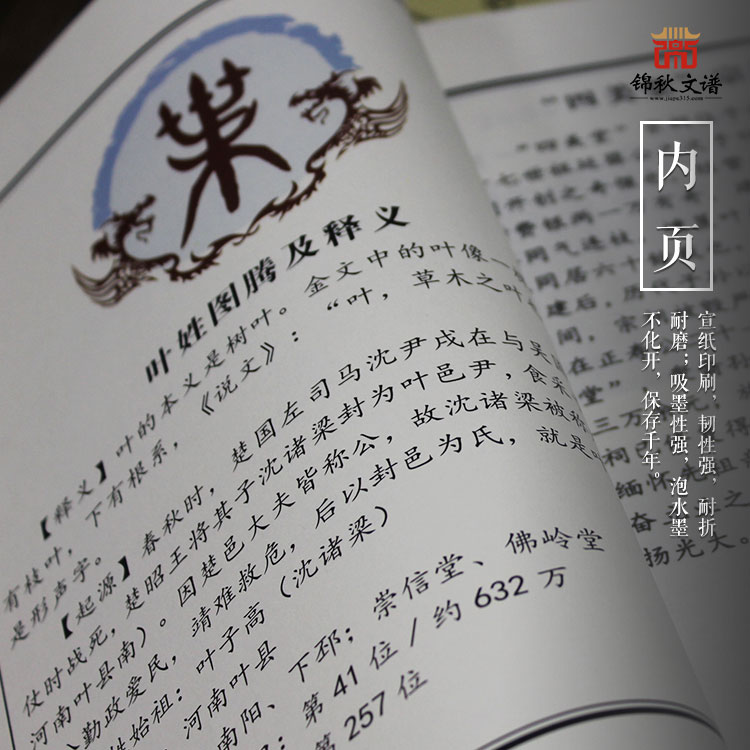 锦秋文谱
www.jiapu315.com
内页
宣纸印刷，韧性强，耐折
耐磨；吸墨性强，泡水墨
不化开，保存千年。
叶姓图腾及释义
【释义】叶的本义是树叶。金文中的叶像一
有枝叶，下有根系，《说文》：“叶，草木之叶
是形声字。
【起源】春秋时，楚国左司马沈尹戌在与吴
仗时战死，楚昭王将其子沈诸梁封为叶邑尹，食采
河南叶县南）。因楚邑大夫皆称公，故沈诸梁被称
勤政爱民，靖难救危，后以封邑为氏，就是叶
姓始祖：叶子高（沈诸梁）
河南叶县
南阳、下邳；崇信堂、佛岭堂
第 41 位 / 约 632 万
第 257 位
“四美
“四美堂”
七世祖
开创之奇
费银两一万
同气连枝
同居六十
建后，历
间，宗
在正
堂”
三万
祠已
缅怀先祖
奋
扬光大。